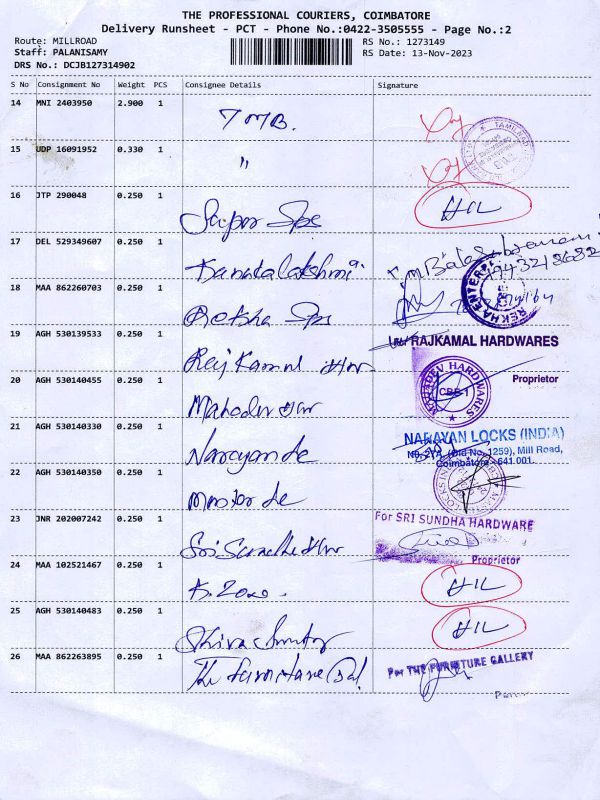 THE PROFESSIONAL COURIERS, COIMBATORE
Delivery Runsheet - PCT - Phone No.:0422-3505555 - Page No.:2
Route: MILLROAD
Staff: PALANISAMY
DRS No.: DCJB127314902
RS No.: 1273149
RS Date: 13-Nov-2023
S No Consignment No Weight PCS Consignee Details Signature
14 MNI 2403950 2.900 1 TMB.
15 UDP 16091952 0.330 1 "
TAMILNAD
16 JTP 290048 0.250 1 Super Sps
17 DEL 529349607 0.250 1
18 MAA 862260703 0.250 1 Reksha Sps
REKHA ENTERP
19 AGH 530139533 0.250 1 Raj Kamal H/w
RAJKAMAL HARDWARES
Proprietor
20 AGH 530140455 0.250 1 Mahadev H/w
MAHADEV HARDWARES
CBE-1
21 AGH 530140330 0.250 1 Narayan
NARAYAN LOCKS (INDIA)
No. 27A, (Old No. 1259), Mill Road,
Coimbatore - 641 001.
22 AGH 530140350 0.250 1
23 JNR 202007242 0.250 1 Sri Sundha H/w
For SRI SUNDHA HARDWARE
Proprietor
24 MAA 102521467 0.250 1
25 AGH 530140483 0.250 1 Shiva
26 MAA 862263895 0.250 1 The Furniture Gal
For THE FURNITURE GALLERY